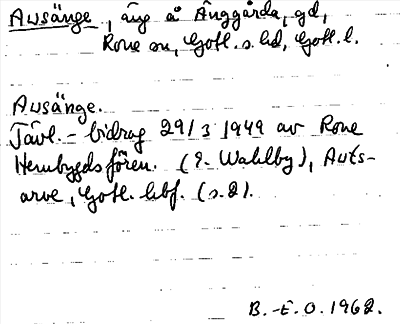 Ausänge, äng å Änggårda, gd,
Rone sn, Gotl. s. hd, Gotl. l.
Ausänge.
Tävl.-bidrag 29/3 1949 av Rone
Hembygdsfören. (E. Wahlby), Auts-
arve, Gotl. hbf. (s. 2).
B.-E.O. 1962.